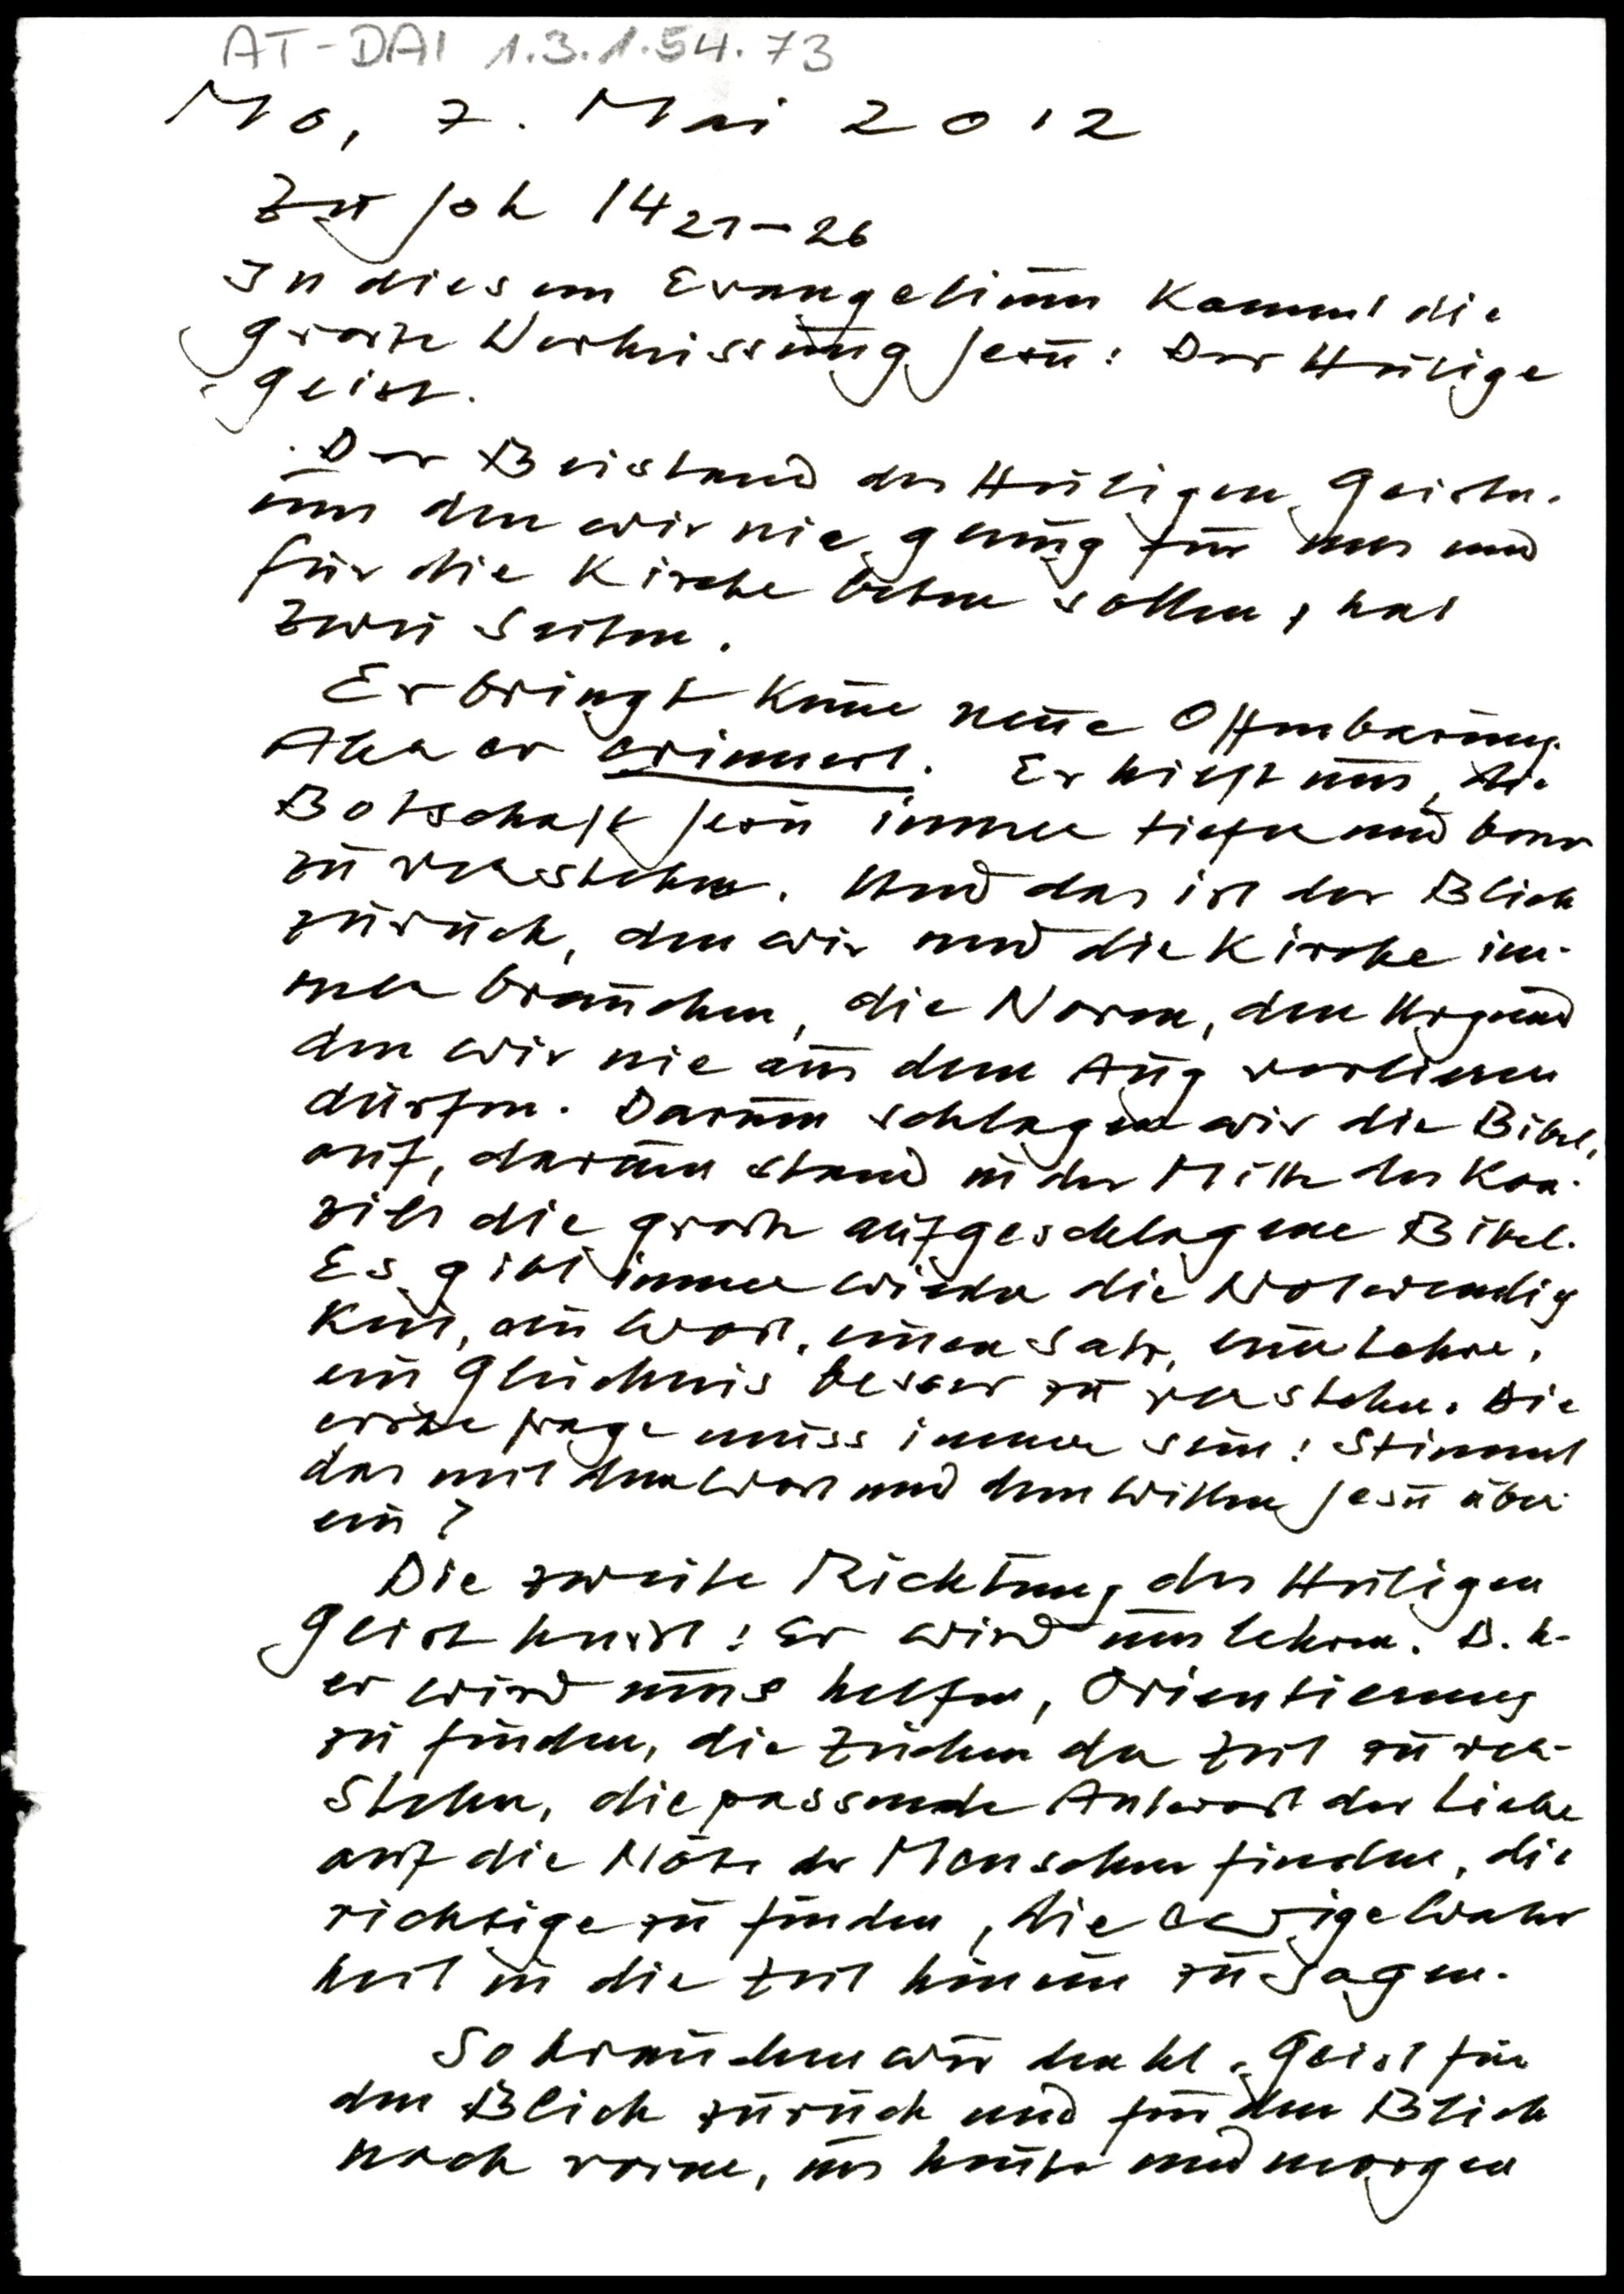 AT-DAI 1.3.1.54.73
Mo, 7. Mai 2012
Zu Joh 14 21-26
In diesem Evangelium kommt die
grosse Verheissung Jesu: Der Heilige
Geist.
Der Beistand des Heiligen Geistes.
um den wir nie genug für uns und
für die Kirche beten sollen, hat
zwei Seiten.
Er bringt keine neue Offenbarung.
Aber er erinnert. Er hilft uns, die
Botschaft Jesu immer tiefer und besser
zu verstehen. Und das ist der Blick
zurück, den wir und die Kirche im-
mer brauchen, die Norm, den Urgrund
den wir nie aus dem Aug verlieren
dürfen. Darum schlagen wir die Bibel
auf, darum stand in der Mitte des Kon-
zils die grosse aufgeschlagene Bibel.
Es gibt immer wieder die Notwendig
keit, ein Wort, einen Satz, eine Lehre,
ein Gleichnis besser zu verstehen. Die
erste Frage muss immer sein: Stimmt
das mit dem Wort und dem Willen Jesu über
ein?
Die zweite Richtung des Heiligen
Geist heisst: Er wird uns lehren. D.h.
er wird uns helfen, Orientierung
zu finden, die Zeichen der Zeit zu ver-
stehen, die passende Antwort der Liebe
auf die Nöte der Menschen finden, die
richtige zu finden, die ewige Wahr
heit in die Zeit hinein zu sagen.
So brauchen wir den hl. Geist für
den Blick zurück und für den Blick
nach vorne, ins heute und morgen